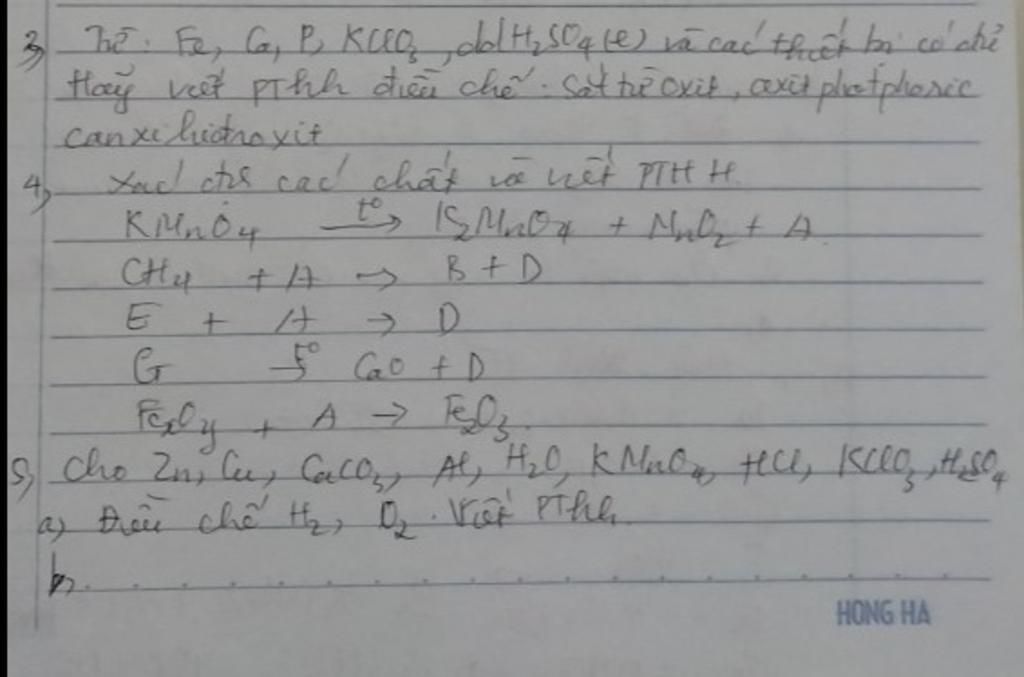 3) Từ: Fe, Ca, P, KClO3, dd H2SO4 (l) và các thiết bị có đủ
Hãy viết PThh điều chế: Sắt từ oxit, axit photphoric
canxi hidroxit
4) Xác đih các chất và viết PTHH
KMnO4 t° → K2MnO4 + MnO2 + A
CH4 + A → B + D
E + A → D
G t° → CaO + D
FexOy + A → Fe2O3.
5) Cho Zn, Cu, CaCO3, Al, H2O, KMnO4, HCl, KClO3, H2SO4
a) Điều chế H2, O2. Viết PThh.
b. . . . . . . . . . . . . . . . .
HONG HA